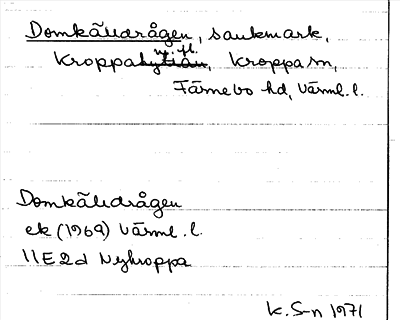 Domkälldrågen, sankmark,
Kroppa ny. fl., Kroppa sn,
Färnebo hd, Värml. l.
Domkälldrågen
ek (1969) Värml. l.
11E2d Nykroppa
K. S-n 1971